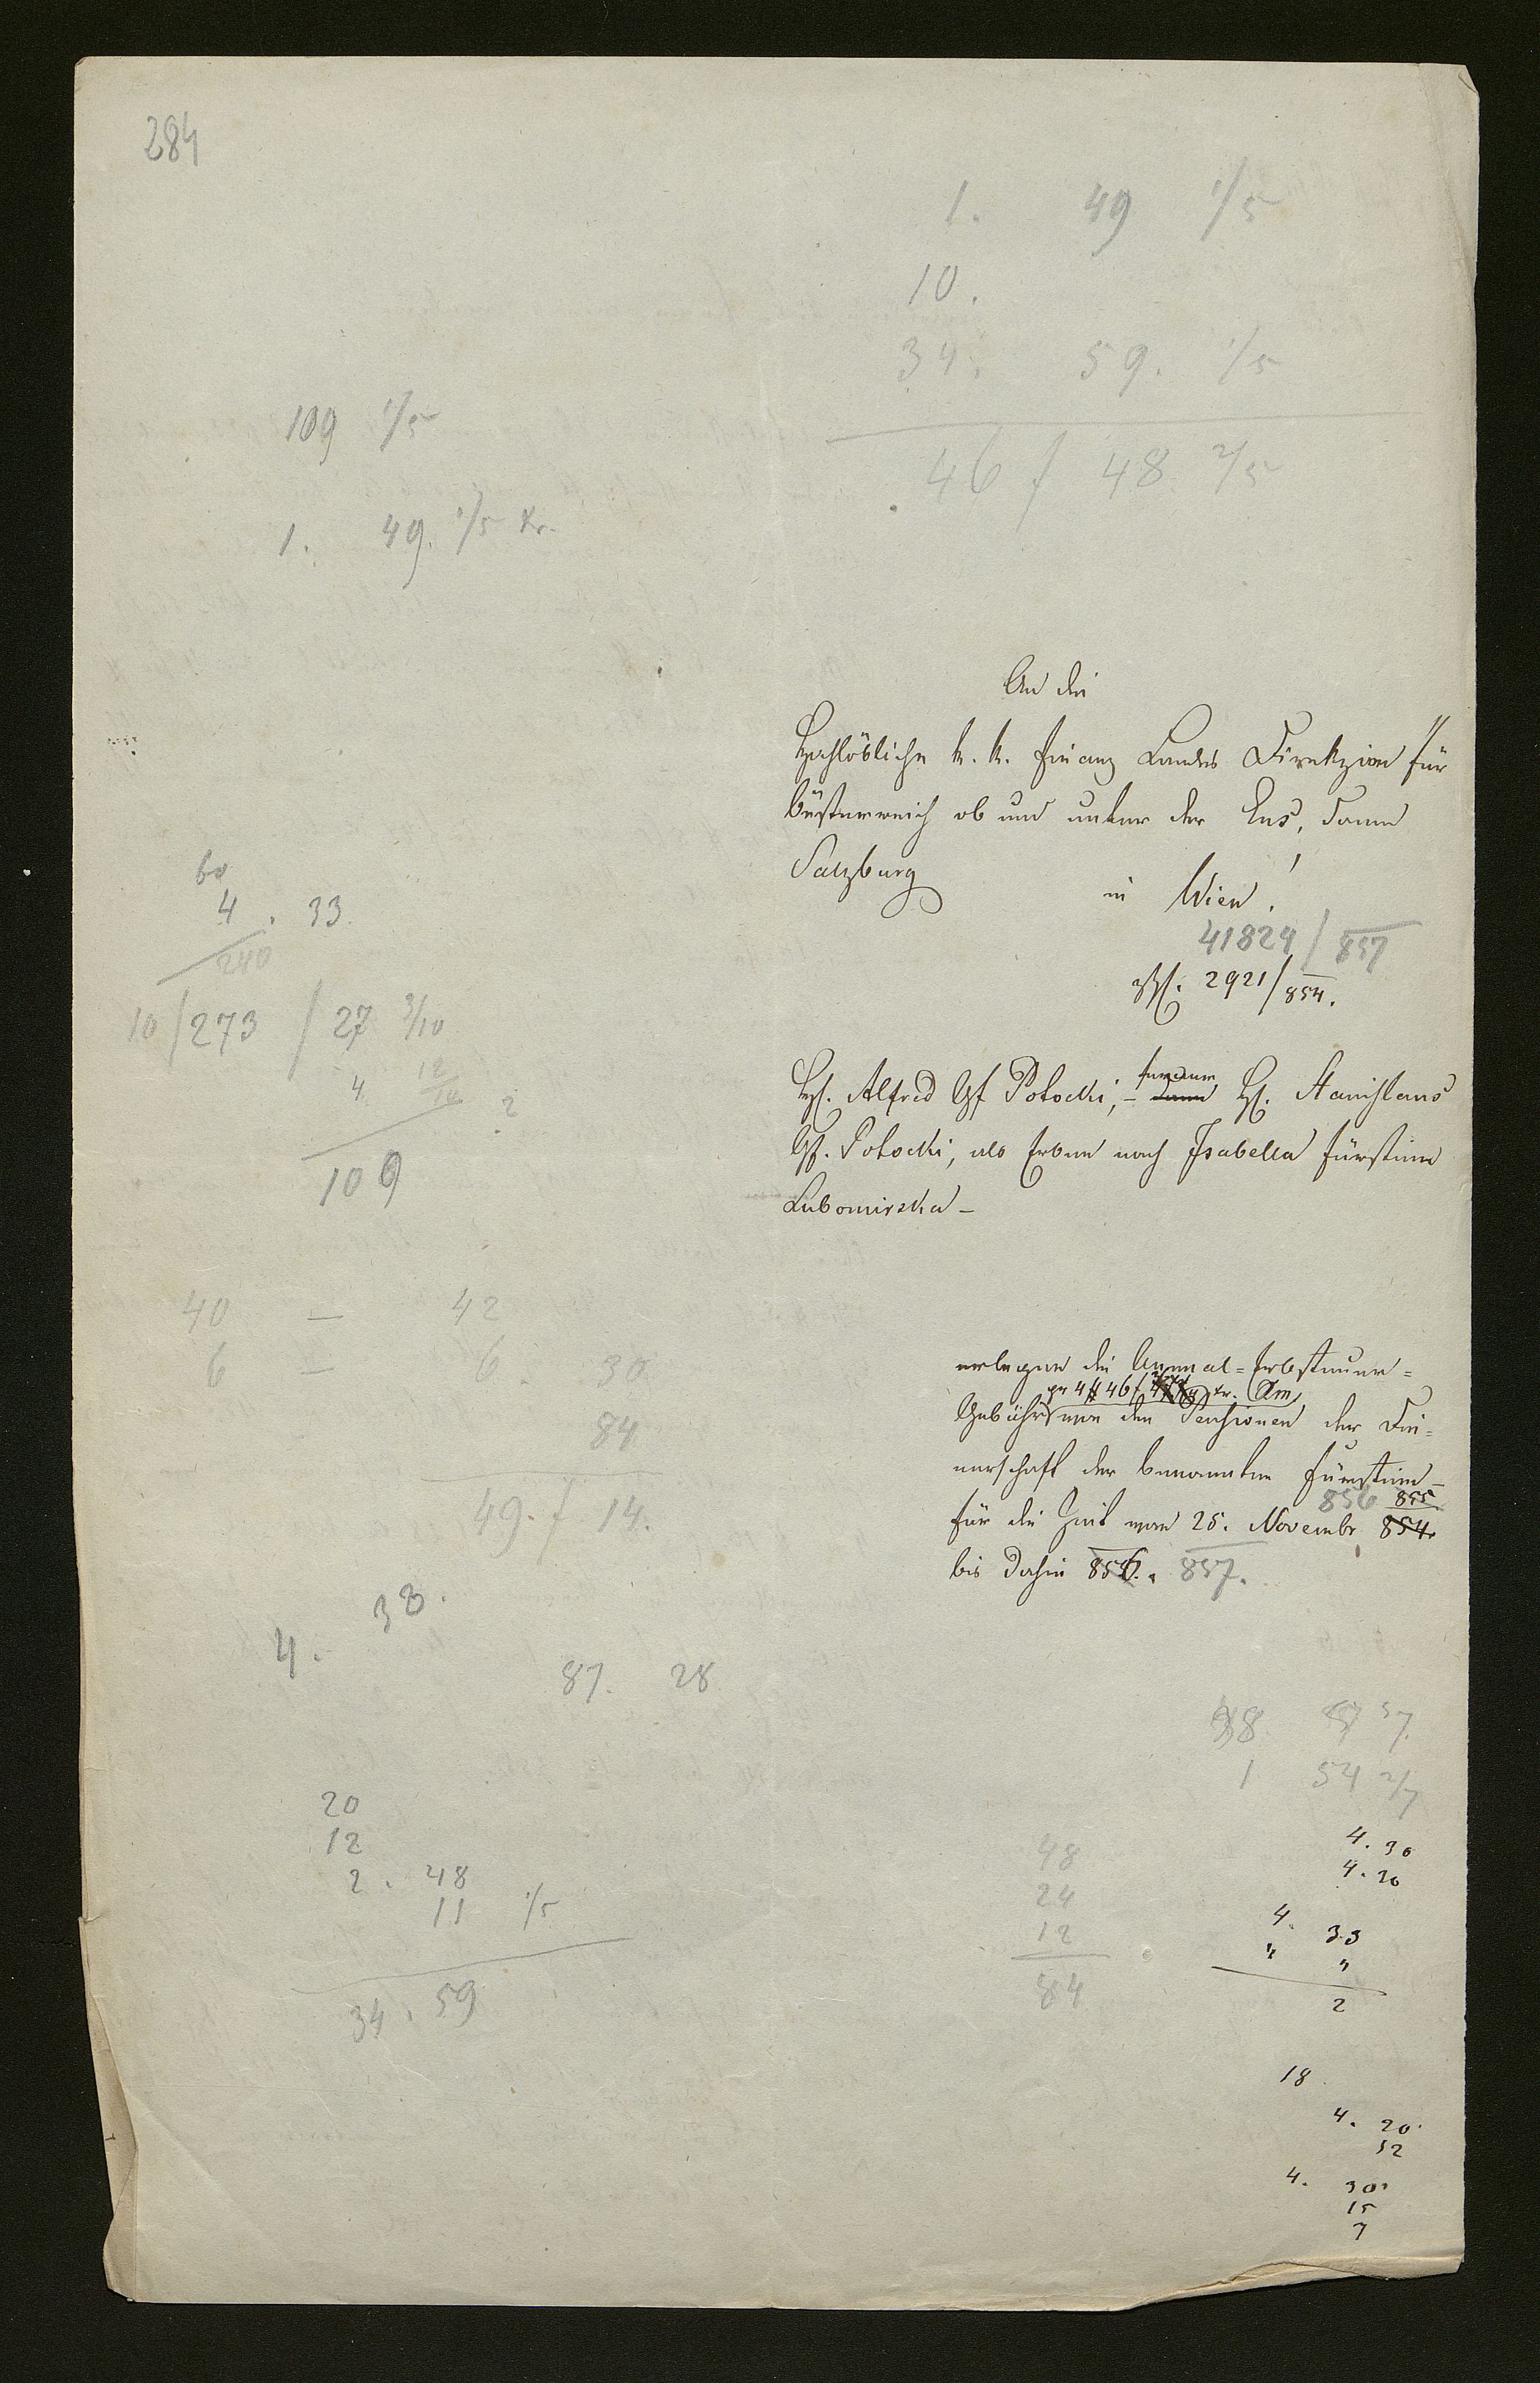 284
1. 49 1/5
10.
34. 59. 1/5
46 f 48 2/5
109 1/5
1. 49. 1/5 Kr.
An die
Hochlöbliche k. k. Finanz Landes Direkzion für
Oesterreich ob und unter der Ens, dann
Salzburg
in Wien!
41824/857
2921/854.
H. Alfred Gf Potocki, – dann H. Stanislaus
Gf. Potocki, als Erben nach Isabella Fürstinn
Lubomirska –
60
4. 33.
240
10/273/27 3/10
4 12/10 2
109
40 — 42
6 — 6. 30
84
49. f 14.
erlegen die Annual=Erbsteuer=
pr 46 f kr. CM
Gebühr von den Pensionen der Die=
nerschaft der benannten Fürstinn
856 855
für die Zeit vom 25. Novembr 854
bis dahin 856. 857.
4. 33.
87. 28
38. 57 57.
1 54 2/7
20
12
2. 48
11 1/5
34. 59
48
24
12
84
4. 30
4. 20
4. 33
" "
2
18
4. 20
52
4. 30
15
7